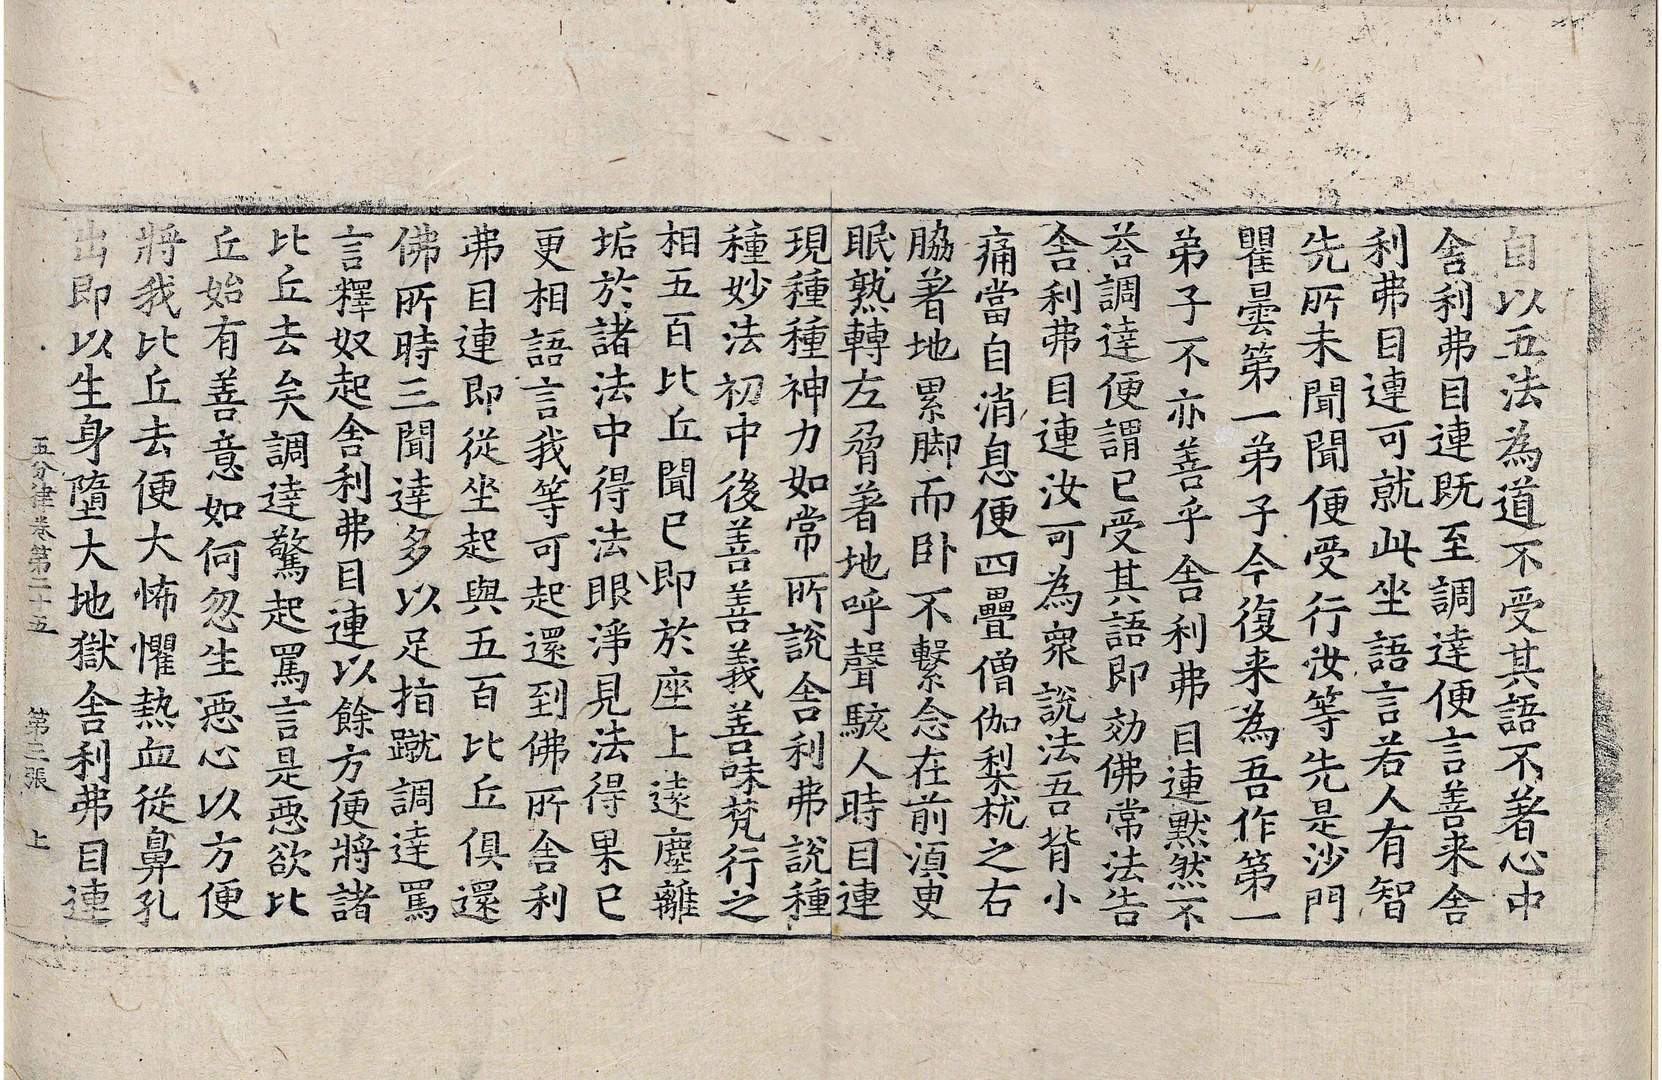 自以五法為道不受其語不著心中
舍利弗目連既至調達便言善来舍
利弗目連可就此坐語言若人有智
先所未聞聞便受行汝等先是沙門
瞿曇第一弟子今復来為吾作第一
弟子不亦善乎舍利弗目連黙然不
荅調達便謂已受其語即効佛常法告
舍利弗目連汝可為衆說法吾背小
痛當自消息便四疊僧伽梨枕之右
脇著地累脚而卧不繫念在前湏臾
眠熟轉左脅著地呼聲駭人時目連
現種種神力如常所說舍利弗說種
種妙法初中後善善義善味梵行之
相五百比丘聞已即於座上遠塵離
垢於諸法中得法眼淨見法得果已
更相語言我等可起還到佛所舍利
弗目連即從坐起與五百比丘俱還
佛所時三聞達多以足指蹴調達罵
言釋奴起舍利弗目連以餘方便將諸
比丘去矣調達驚起罵言是惡欲比
丘始有善意如何忽生惡心以方便
將我比丘去便大怖懼熱血從鼻孔
出即以生身墮大地獄舍利弗目連
五分律卷第二十五 第二張 上